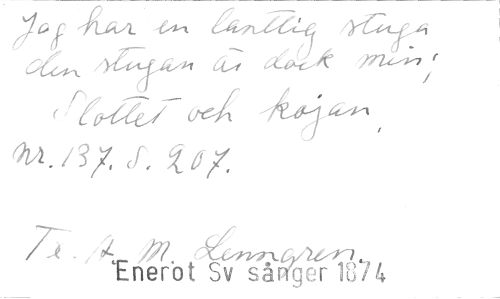 Jag har en lanttlig stuga
den stugan är dock min;
Slottet och kojan,
nr. 137. S. 207.
Te. A. M. Lenngren.
Enerot Sv sånger 1874